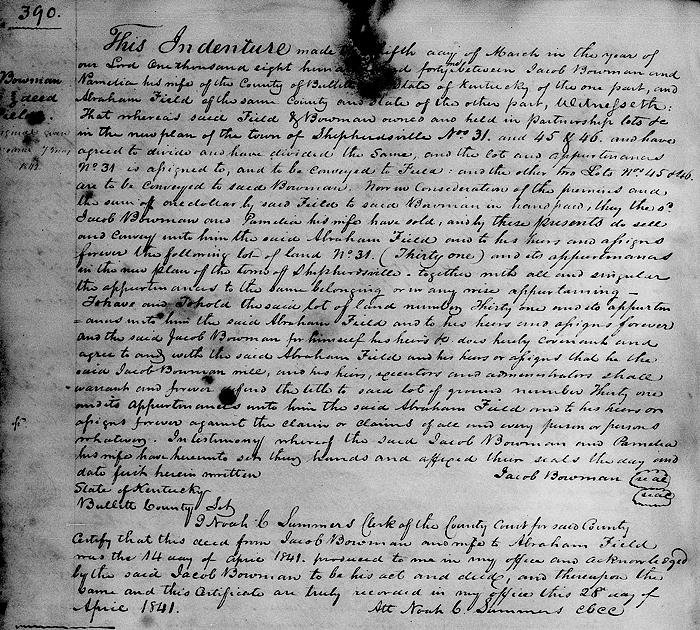 390.
Bowman
deed
Field
This Indenture made fifth day of March in the year of
our Lord One thousand eight and forty between Jacob Bowman and
Pamelia his wife of the County of Bullitt State of Kentucky of the one part, and
Abraham Field of the same County and State of the other part, Witnesseth:
That whereas said Field & Bowman owned and held in partnership lots
in the new plan of the town of Shepherdsville Nos 31. and 45 & 46. and have
agreed to divide and have divided the same, and the lot and appurtenances
No 31 is assigned to, and to be conveyed to Field: and the other two Lots Nos 45 & 46.
are to be conveyed to said Bowman. Now in Consideration of the premises and
the sum of one dollar by said Field to said Bowman in hand paid, they the sd
Jacob Bowman and Pamelia his wife have sold, and by these presents do sell
and Convey unto him the said Abraham Field and to his heirs and assigns
forever the following lot of land No 31. (Thirty one) and its appurtenances
in the new plan of the town of Shepherdsville - together with all and singular
the appurtenances to the same belonging or in any wise appertaining -
To have and To hold the said lot of land number Thirty one and its appurten
=ances unto him the said Abraham Field and to his heirs and assigns forever
and the said Jacob Bowman for himself his heirs &c does hereby covenant and
agree to and with the said Abraham Field and his heirs or assigns that he the
said Jacob Bowman will, and his heirs, executors and administrators shall
warrant and forever defend the title to said lot of ground number Thirty one
and its appurtenances unto him the said Abraham Field and to his heirs or
assigns forever against the claim or claims of all and every person or persons
whatever. In testimony whereof the said Jacob Bowman and Pamelia
his wife have hereunto set their hands and affixed their seals the day and
date first herein written
Jacob Bowman seal
seal
State of Kentucky
Bullitt County Sct
I Noah C Summers Clerk of the County Court for said County
Certify that this deed from Jacob Bowman and wife to Abraham Field
was the 14 day of April 1841. produced to me in my office and acknowledged
by the said Jacob Bowman to be his act and deed, and thereupon the
same and this Certificate are truly recorded in my office this 28 day of
April 1841.
Att Noah C. Summers cbcc